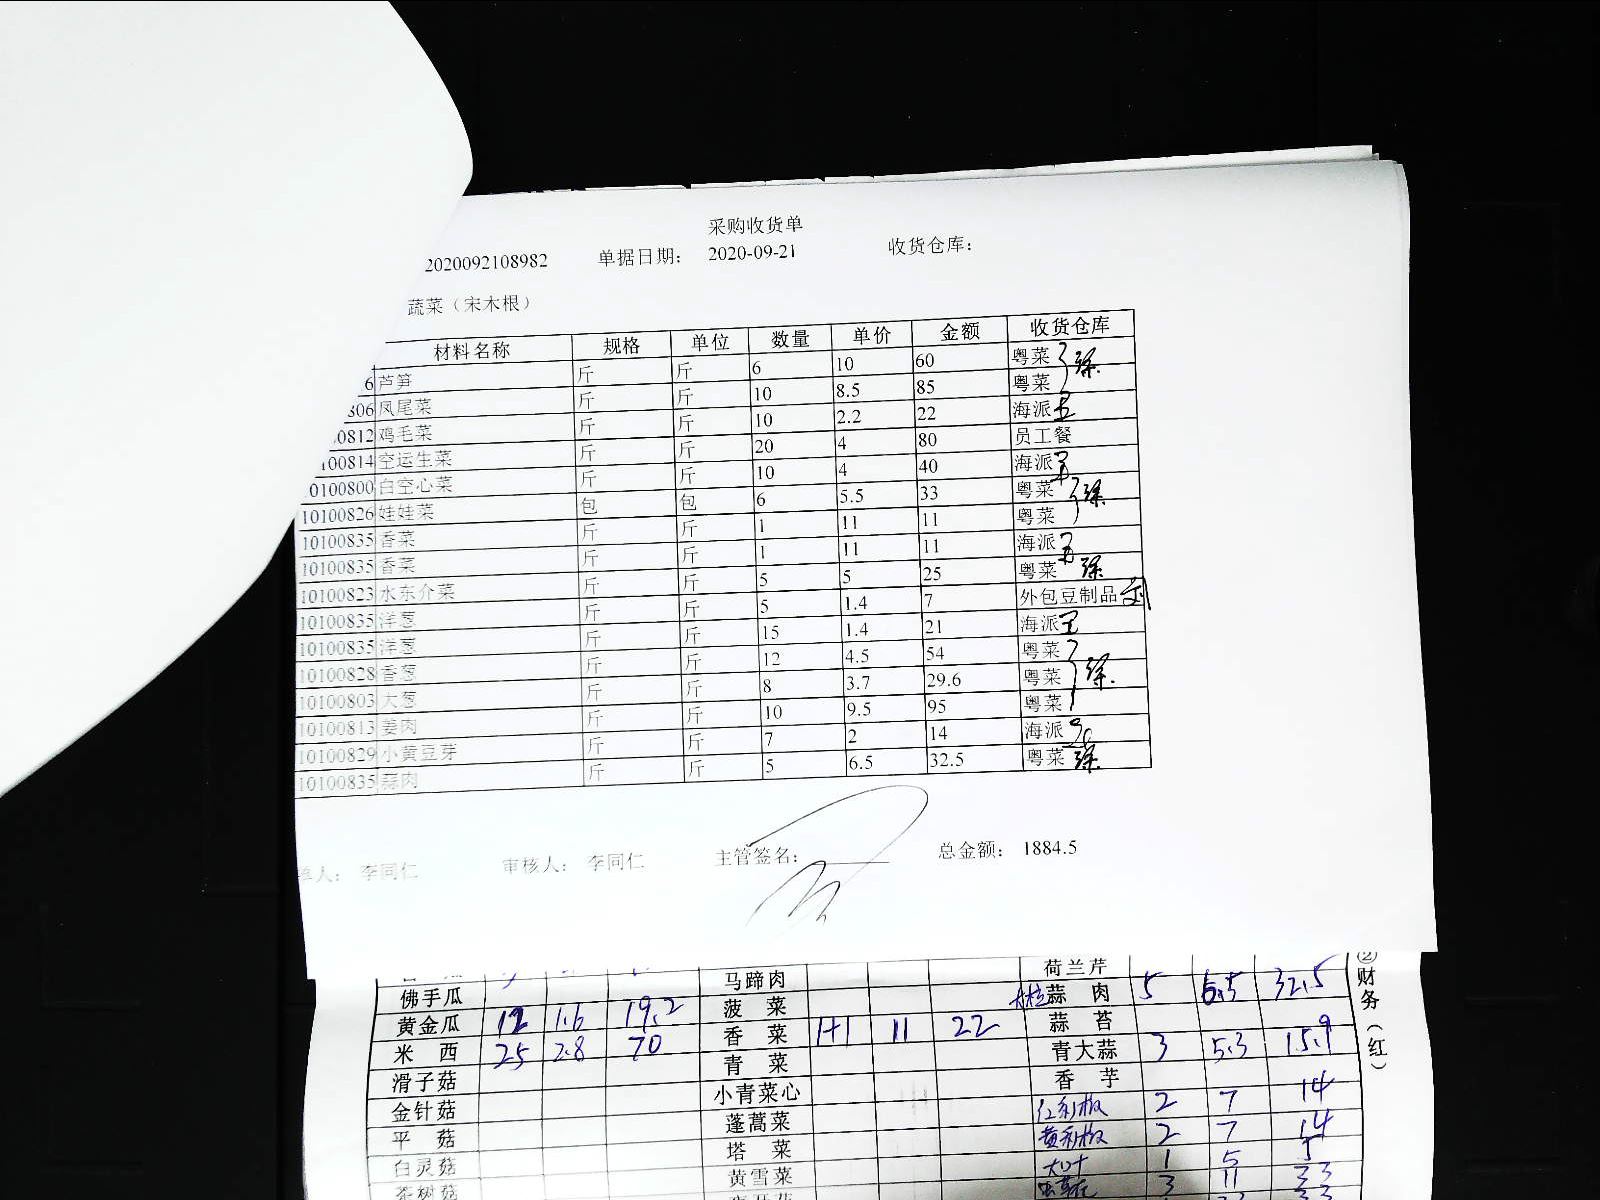 采购收货单
2020092108982 单据日期： 2020-09-21 收货仓库：
蔬菜（宋木根）
材料名称 规格 单位 数量 单价 金额 收货仓库
6 芦笋 斤 斤 6 10 60 粤菜
806 凤尾菜 斤 斤 10 8.5 85 粤菜
0812 鸡毛菜 斤 斤 10 2.2 22 海派
100814 空运生菜 斤 斤 20 4 80 员工餐
0100800 白空心菜 斤 斤 10 4 40 海派
10100826 娃娃菜 包 包 6 5.5 33 粤菜
10100835 香菜 斤 斤 1 11 11 粤菜
10100835 香菜 斤 斤 1 11 11 海派
10100823 水东介菜 斤 斤 5 5 25 粤菜
10100835 洋葱 斤 斤 5 1.4 7 外包豆制品
10100835 洋葱 斤 斤 15 1.4 21 海派
10100828 香葱 斤 斤 12 4.5 54 粤菜
10100803 大葱 斤 斤 8 3.7 29.6 粤菜
10100813 姜肉 斤 斤 10 9.5 95 粤菜
10100829 小黄豆芽 斤 斤 7 2 14 海派
10100835 蒜肉 斤 斤 5 6.5 32.5 粤菜
单人： 李同仁 审核人： 李同仁 主管签名： 总金额： 1884.5
马蹄肉 荷兰芹
佛手瓜 菠菜 蒜肉 5 6.5 32.5
黄金瓜 12 1.6 19.2 香菜 1+1 11 22 蒜苔
米西 25 2.8 70 青菜 青大蒜 3 5.3 15.9
滑子菇 小青菜心 香芋
金针菇 蓬蒿菜 红利椒 2 7 14
平菇 塔菜 黄利椒 2 7 14
白灵菇 黄雪菜 大叶 1 5 5
茶树菇 3 11 33
②财务（红）